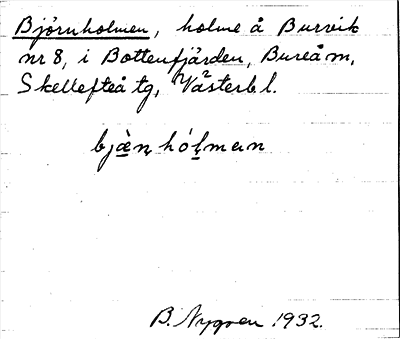 Björnholmen, holme å Burvik
nr 8, i Bottenfjärden, Bureå sn,
Skellefteå tg, Västerb l.
bjæ̀ṇhóḷmɘn
B. Nygren 1932.